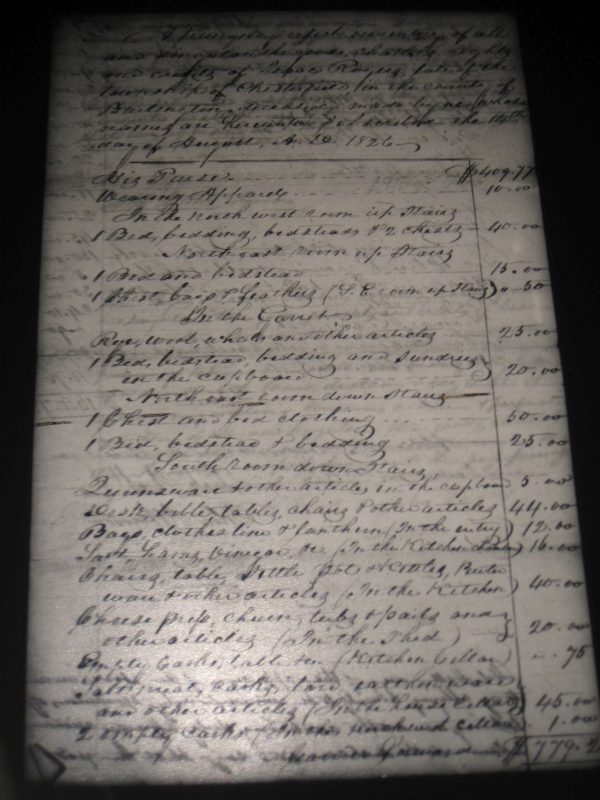 A true and perfect inventory of all
and singular the goods, chattels, rights
and credits of Isaac late of the
township of Chesterfield in the county of
Burlington, deceased, made by us whose
names are hereunto subscribed the 14th
day of August, A. D. 1826
His Purse $409.77
Wearing Apparel 10.00
In the north west room up Stairs
1 Bed, bedding, bedsteads & 2 chests 40.00
North east room up Stairs
1 Bed and bedstead 15.00
1 Chest, bags & feathers (S. E. room up Stairs) " 50
In the Garret
Rye, wool, and other articles 25.00
1 Bed, bedstead, bedding and Sundries
in the cupboard 20.00
North east room down Stairs
1 Chest and bed clothing 50.00
1 Bed, bedstead & bedding 25.00
South room down Stairs
Queensware & other articles in the cupboard 5.00
Desk, bible, tables, chairs & other articles 44.00
Bags, clothes line & lanthern (In the entry) 12.00
Vinegar, &c (In the Kitchen) 16.00
Chairs, table, Settle Pots & Kettles, Pewter
ware & other articles (In the Kitchen) 40.00
Cheese press, churn, tubs & pails and
other articles (In the Shed) 20.00
Empty Casks, (Kitchen Cellar) 75
meat, casks, lard earthen ware
and other articles (In the House Cellar) 45.00
2 empty Casks (In the Cellar 1.00
forward $779.2